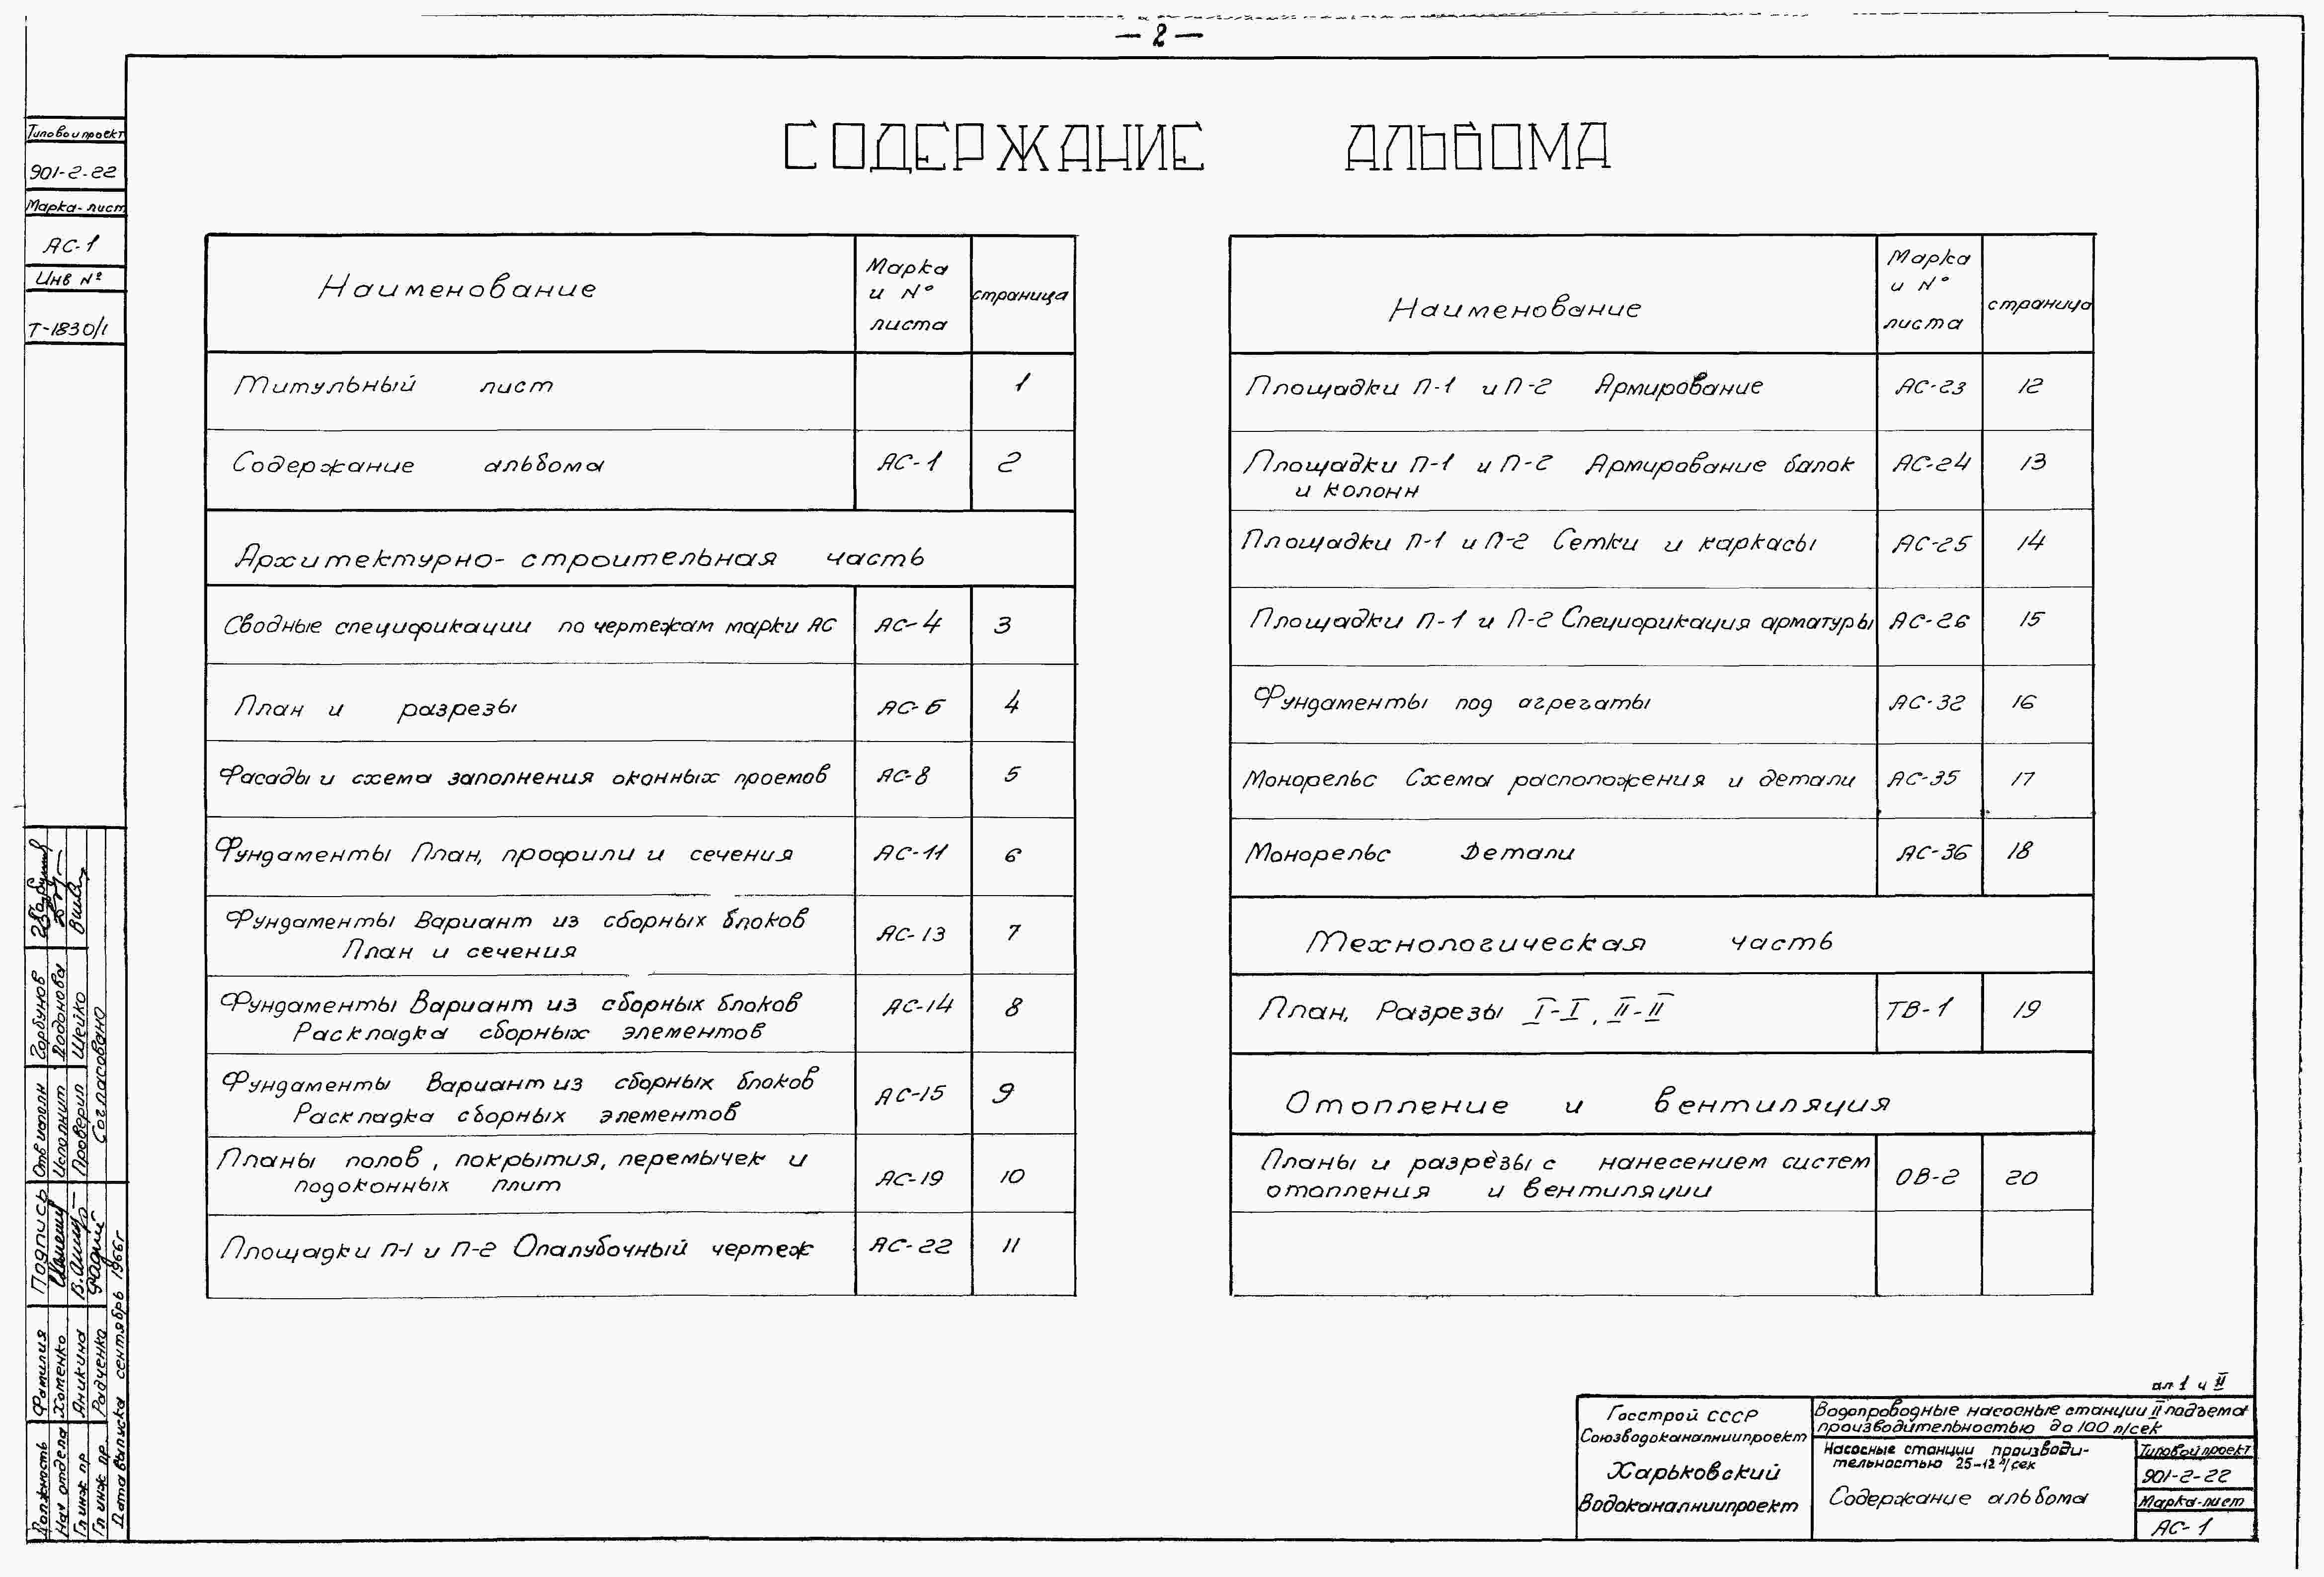 — 2 —
СОДЕРЖАНИЕ АЛЬБОМА
Типовой проект
901-2-22
Марка-лист
АС-1
Инв №
Т-1830/1
Наименование
Марка и № листа
страница
Титульный лист 1
Содержание альбома АС-1 2
Архитектурно-строительная часть
Сводные спецификации по чертежам марки АС АС-4 3
План и разрезы АС-6 4
Фасады и схема заполнения оконных проемов АС-8 5
Фундаменты План, профили и сечения АС-11 6
Фундаменты Вариант из сборных блоков
План и сечения АС-13 7
Фундаменты Вариант из сборных блоков
Раскладка сборных элементов АС-14 8
Фундаменты Вариант из сборных блоков
Раскладка сборных элементов АС-15 9
Планы полов, покрытия, перемычек и
подоконных плит АС-19 10
Площадки П-1 и П-2 Опалубочный чертеж АС-22 11
Наименование
Марка и № листа
страница
Площадки П-1 и П-2 Армирование АС-23 12
Площадки П-1 и П-2 Армирование балок
и колонн АС-24 13
Площадки П-1 и П-2 Сетки и каркасы АС-25 14
Площадки П-1 и П-2 Спецификация арматуры АС-26 15
Фундаменты под агрегаты АС-32 16
Монорельс Схема расположения и детали АС-35 17
Монорельс Детали АС-36 18
Технологическая часть
План, Разрезы I-I, II-II ТВ-1 19
Отопление и вентиляция
Планы и разрезы с нанесением систем
отопления и вентиляции ОВ-2 20
Должность Фамилия Подпись
Нач отдела Хоменко
Гл инж пр Аникина
Гл инж пр. Радченко
Дата выпуска сентябрь 1966г
Отв исполн Горбунов
Исполнит Додонова
Проверил Шейко
Согласовано
ал 1 ч II
Госстрой СССР
Союзводоканалниипроект
Харьковский
Водоканалниипроект
Водопроводные насосные станции II подъема
производительностью до 100 л/сек
Насосные станции производи-
тельностью 25-12 л/сек
Содержание альбома
Типовой проект
901-2-22
Марка-лист
АС-1